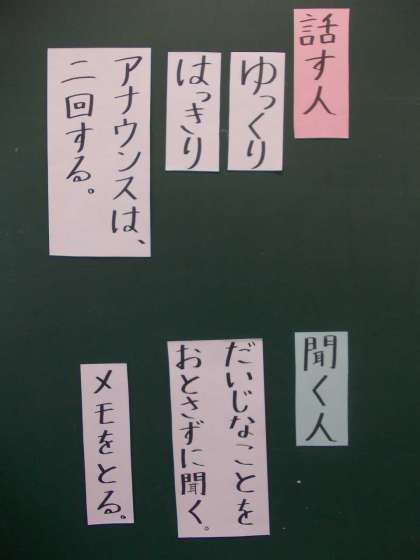 話す人
ゆっくり
はっきり
アナウンスは、
二回する。
聞く人
だいじなことを
おとさずに聞く。
メモをとる。